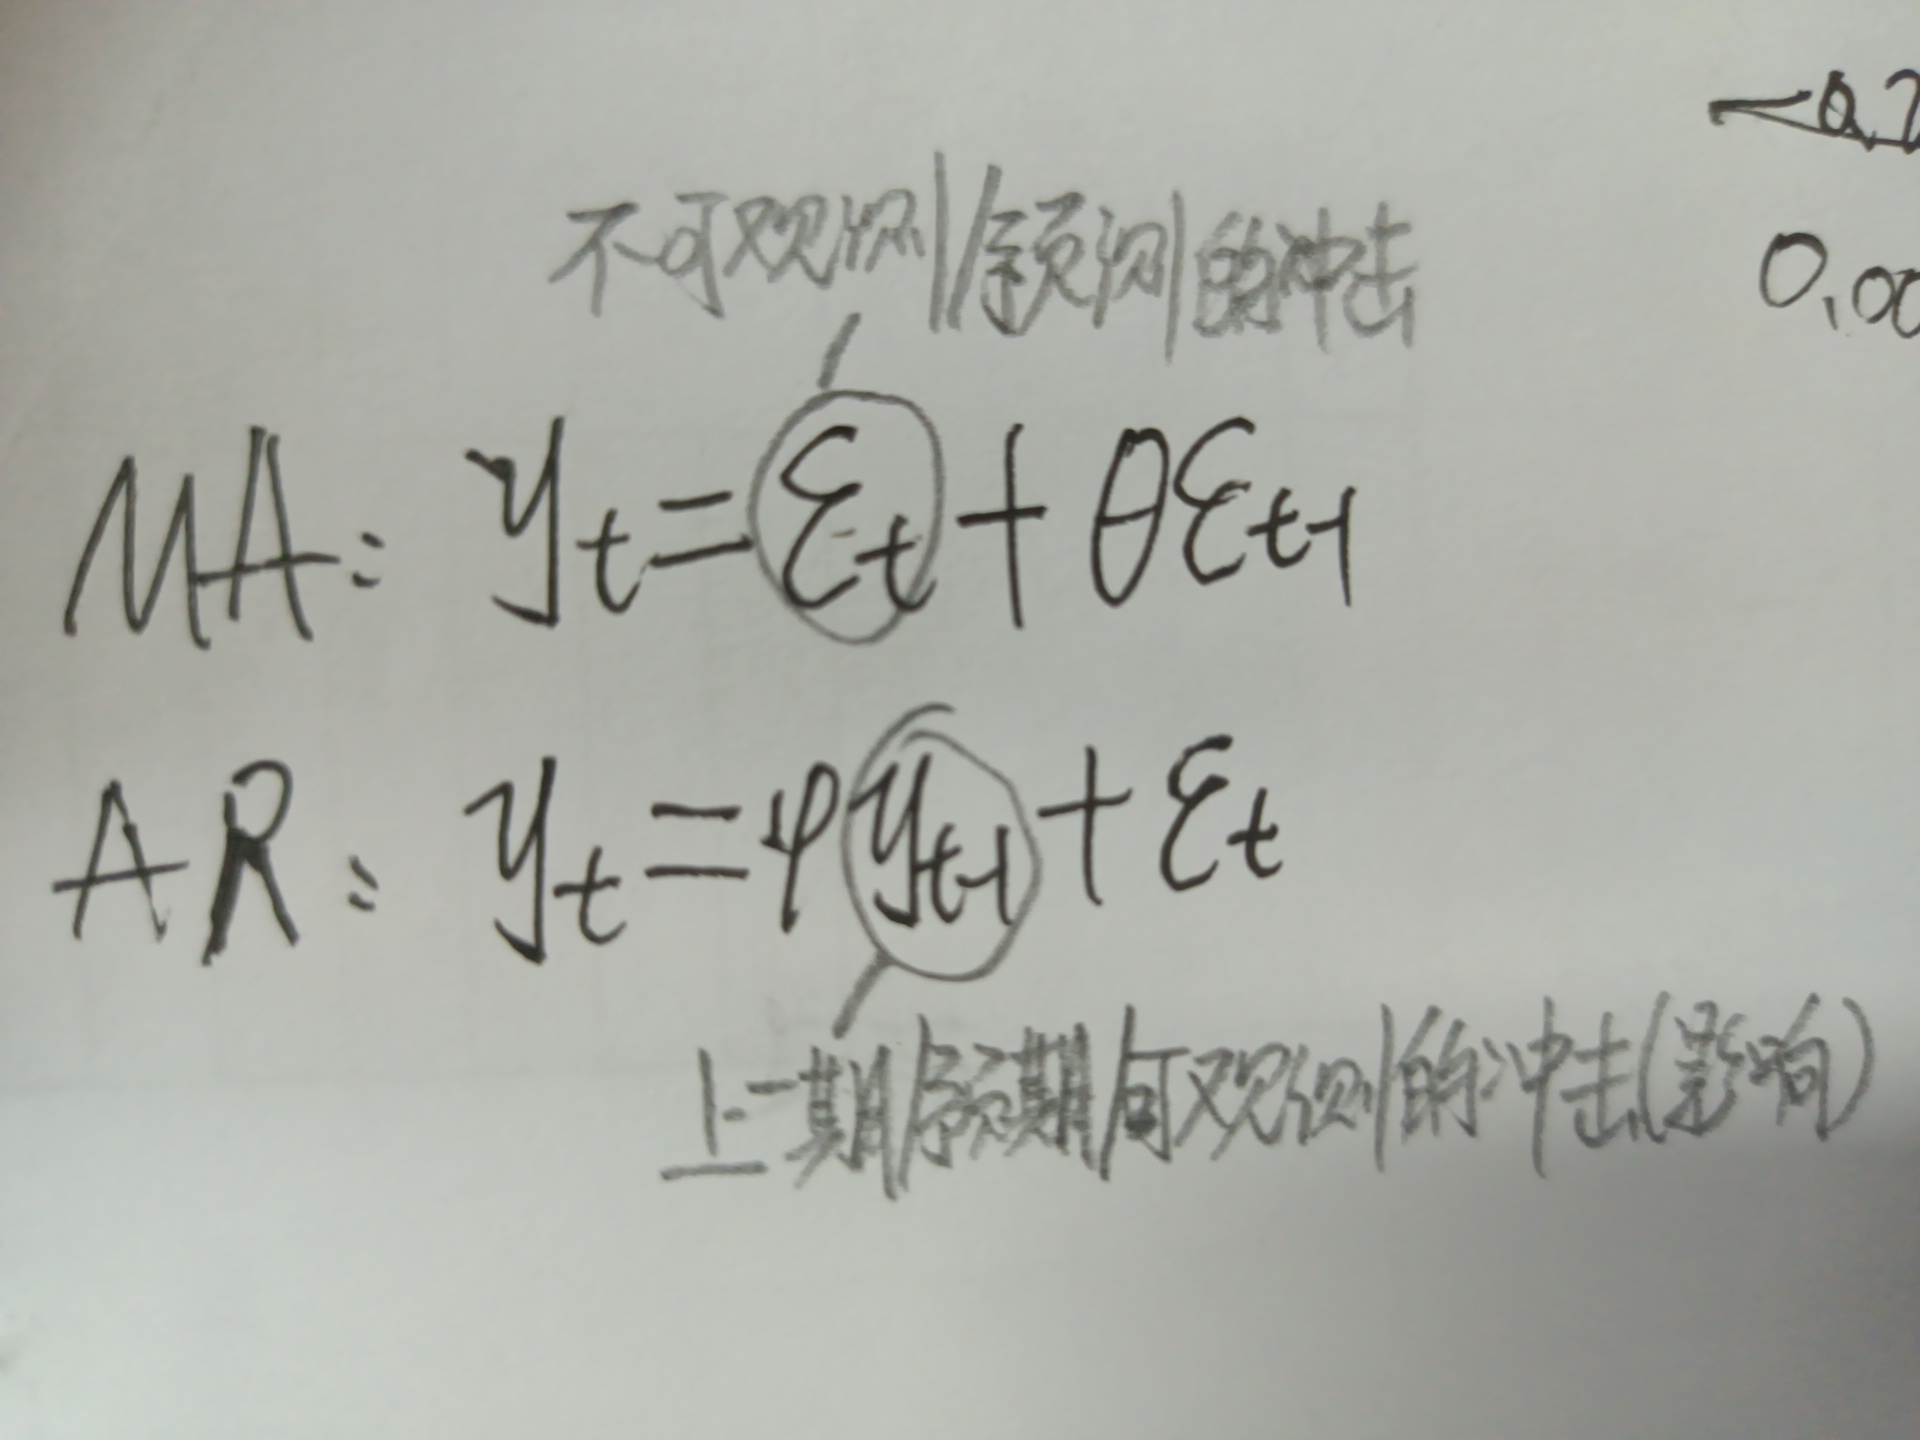 不可观测/预测的冲击
MA: yₜ=εₜ+θεₜ₋₁
AR: yₜ=φyₜ₋₁+εₜ
上一期/预期/可观测的冲击(影响)
0.00